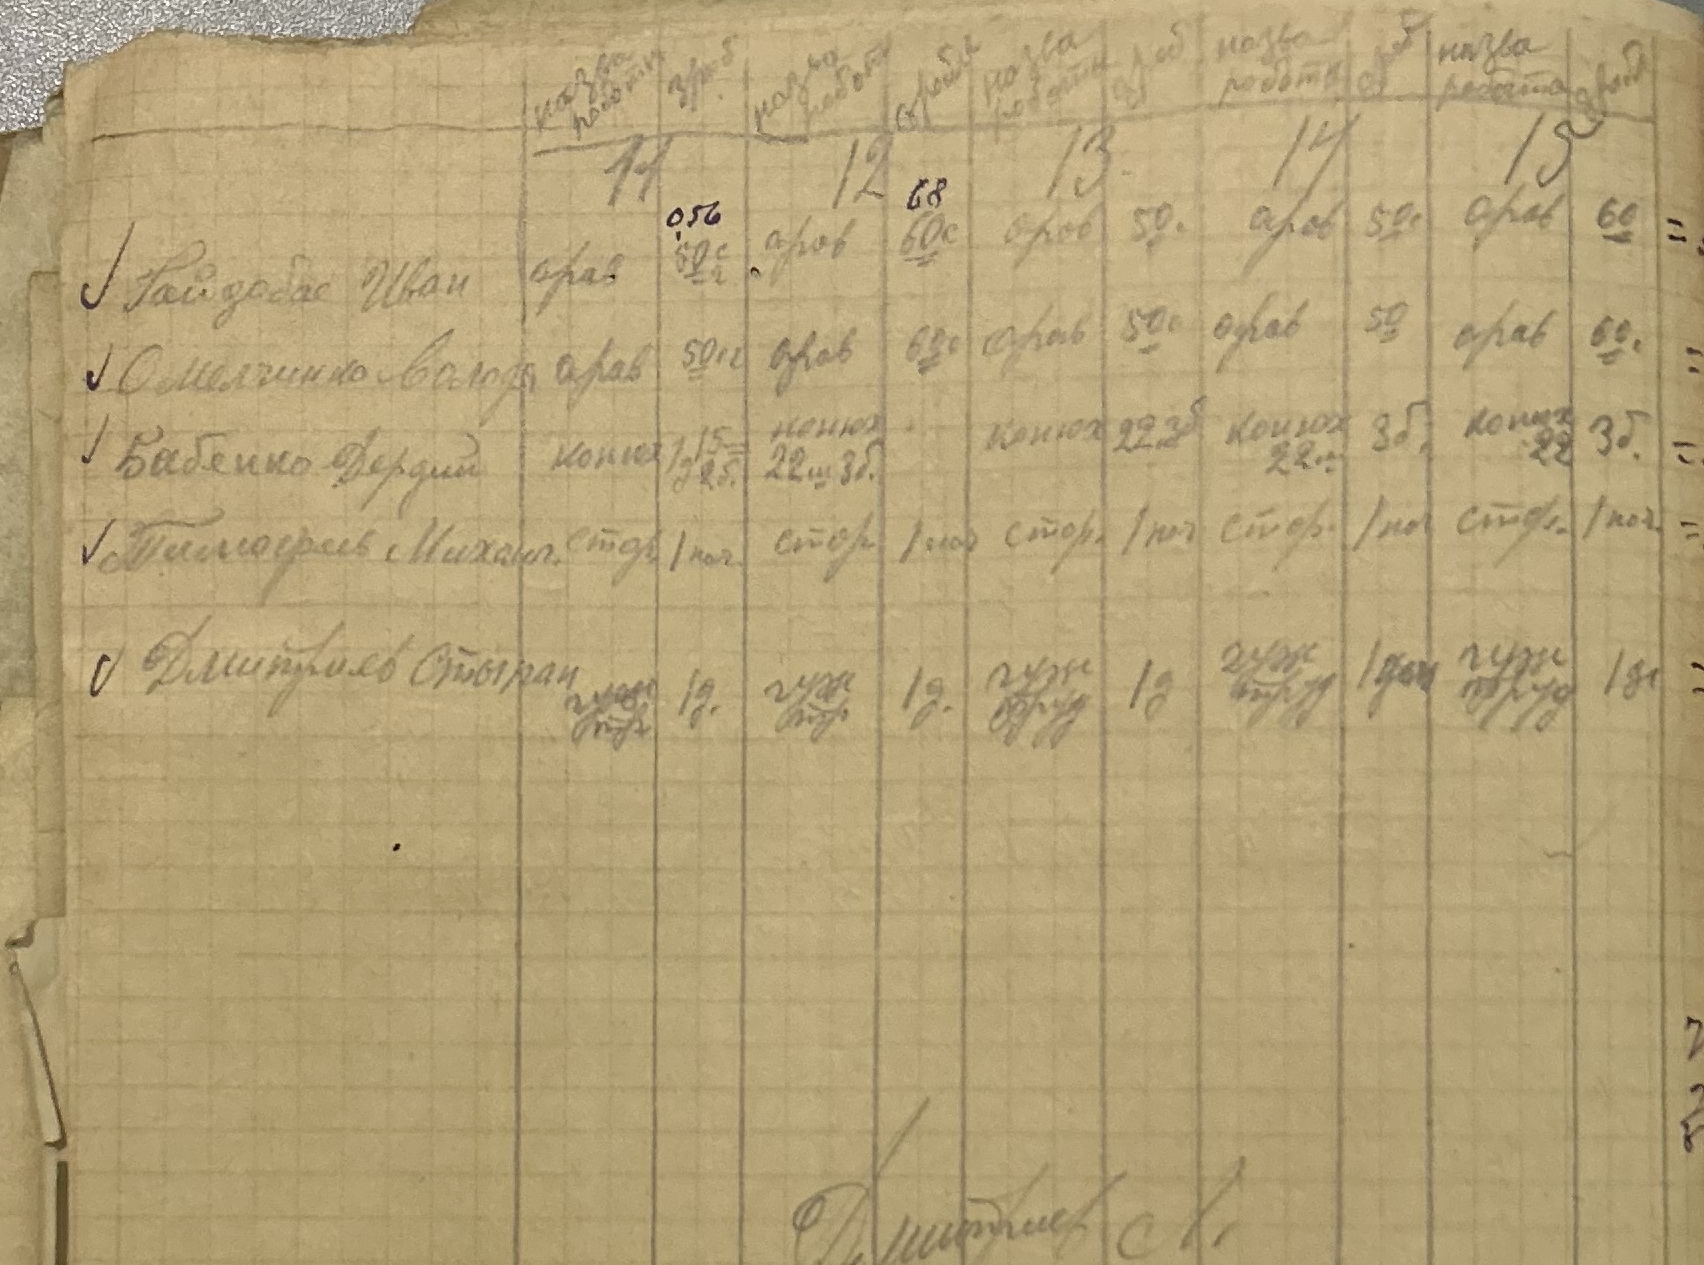 назва роботи зроб. назва роботи зробле назва роботи зроб назва роботи зроб назва роботи зробл
11 12 13. 14 15
0,56 68
✓ Гайдабас Иван арав 50с арав 60с арав 50с арав 50с арав 60 =
✓ Омелчинко Володя арав 50сг арав 60с арав 50с арав 50 арав 60с =
✓ Бабенко Сергий конюх 2б. конюх 22ш 3б. конюх 22 3б конюх 22ш 3б. конюх 22 3б. =
✓ Тимофеев Михаил. стор. 1 ноч. стор. 1 ноч стор. 1 ноч стор. 1 ноч стор. 1 ноч. =
✓ Дмитриев Стыпан гуж тр 1д. гуж тр. 1д. гуж труд 1д гуж труд 1 ден гуж труд 1д
Дмитриев С